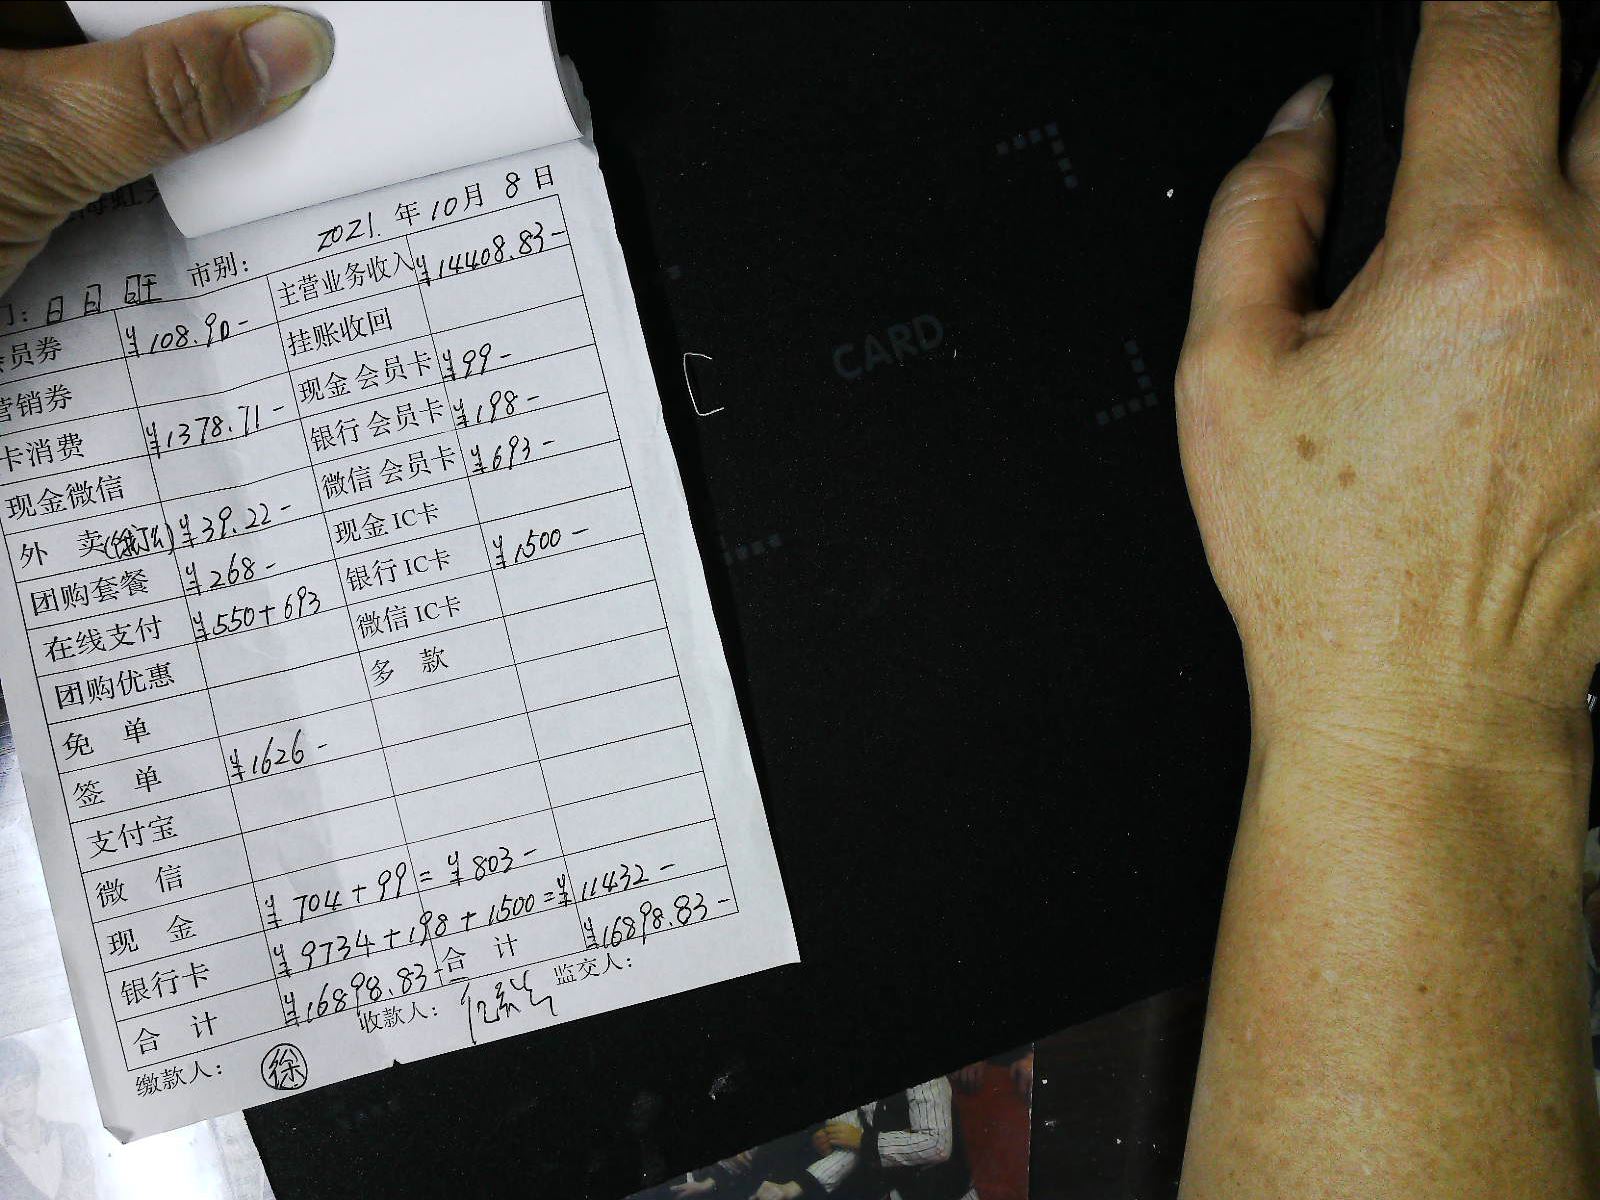 2021. 年 10 月 8 日
门: 日 日 旺 市别:
会员券 ¥108.90- 主营业务收入 ¥14408.83-
营销券 挂账收回
卡消费 ¥1378.71- 现金会员卡 ¥99-
现金微信 银行会员卡 ¥198-
外 卖(饿了么) ¥39.22- 微信会员卡 ¥693-
团购套餐 ¥268- 现金IC卡
在线支付 ¥550+693 银行IC卡 ¥1500-
团购优惠 微信IC卡
免 单 多 款
签 单 ¥1626-
支付宝
微 信
现 金 ¥704+99=¥803-
银行卡 ¥9734+198+1500=¥11432-
合 计 ¥16898.83- 合 计 ¥16898.83-
缴款人: 徐 收款人: 监交人:
CARD